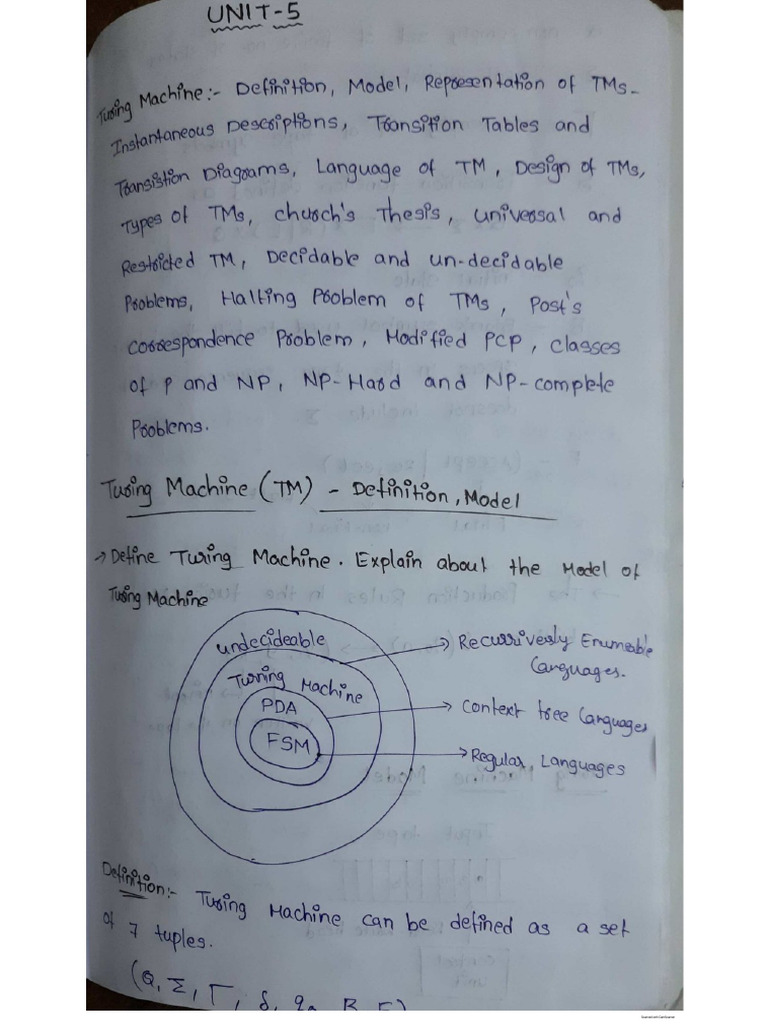 UNIT-5
Turing Machine:- Definition, Model, Representation of TMs-
Instantaneous Descriptions, Transition Tables and
Transistion Diagrams, Language of TM, Design of TMs,
Types of TMs, church's Thesis, universal and
Restricted TM, Decidable and un-decidable
Problems, Halting Problem of TMs, Post's
correspondence Problem, Modified PCP, classes
of P and NP, NP-Hard and NP-complete
Problems.
Turing Machine (TM) - Definition, Model
→ Define Turing Machine. Explain about the Model of
Turing Machine
undecideable
Turning Machine
PDA
FSM
→ Recurrively Enumerable
Languages.
→ context free Languages
→ Regular, Languages
Definition:- Turing Machine can be defined as a set
of 7 tuples.
(Q, Σ, Γ, δ, q₀, B, F)